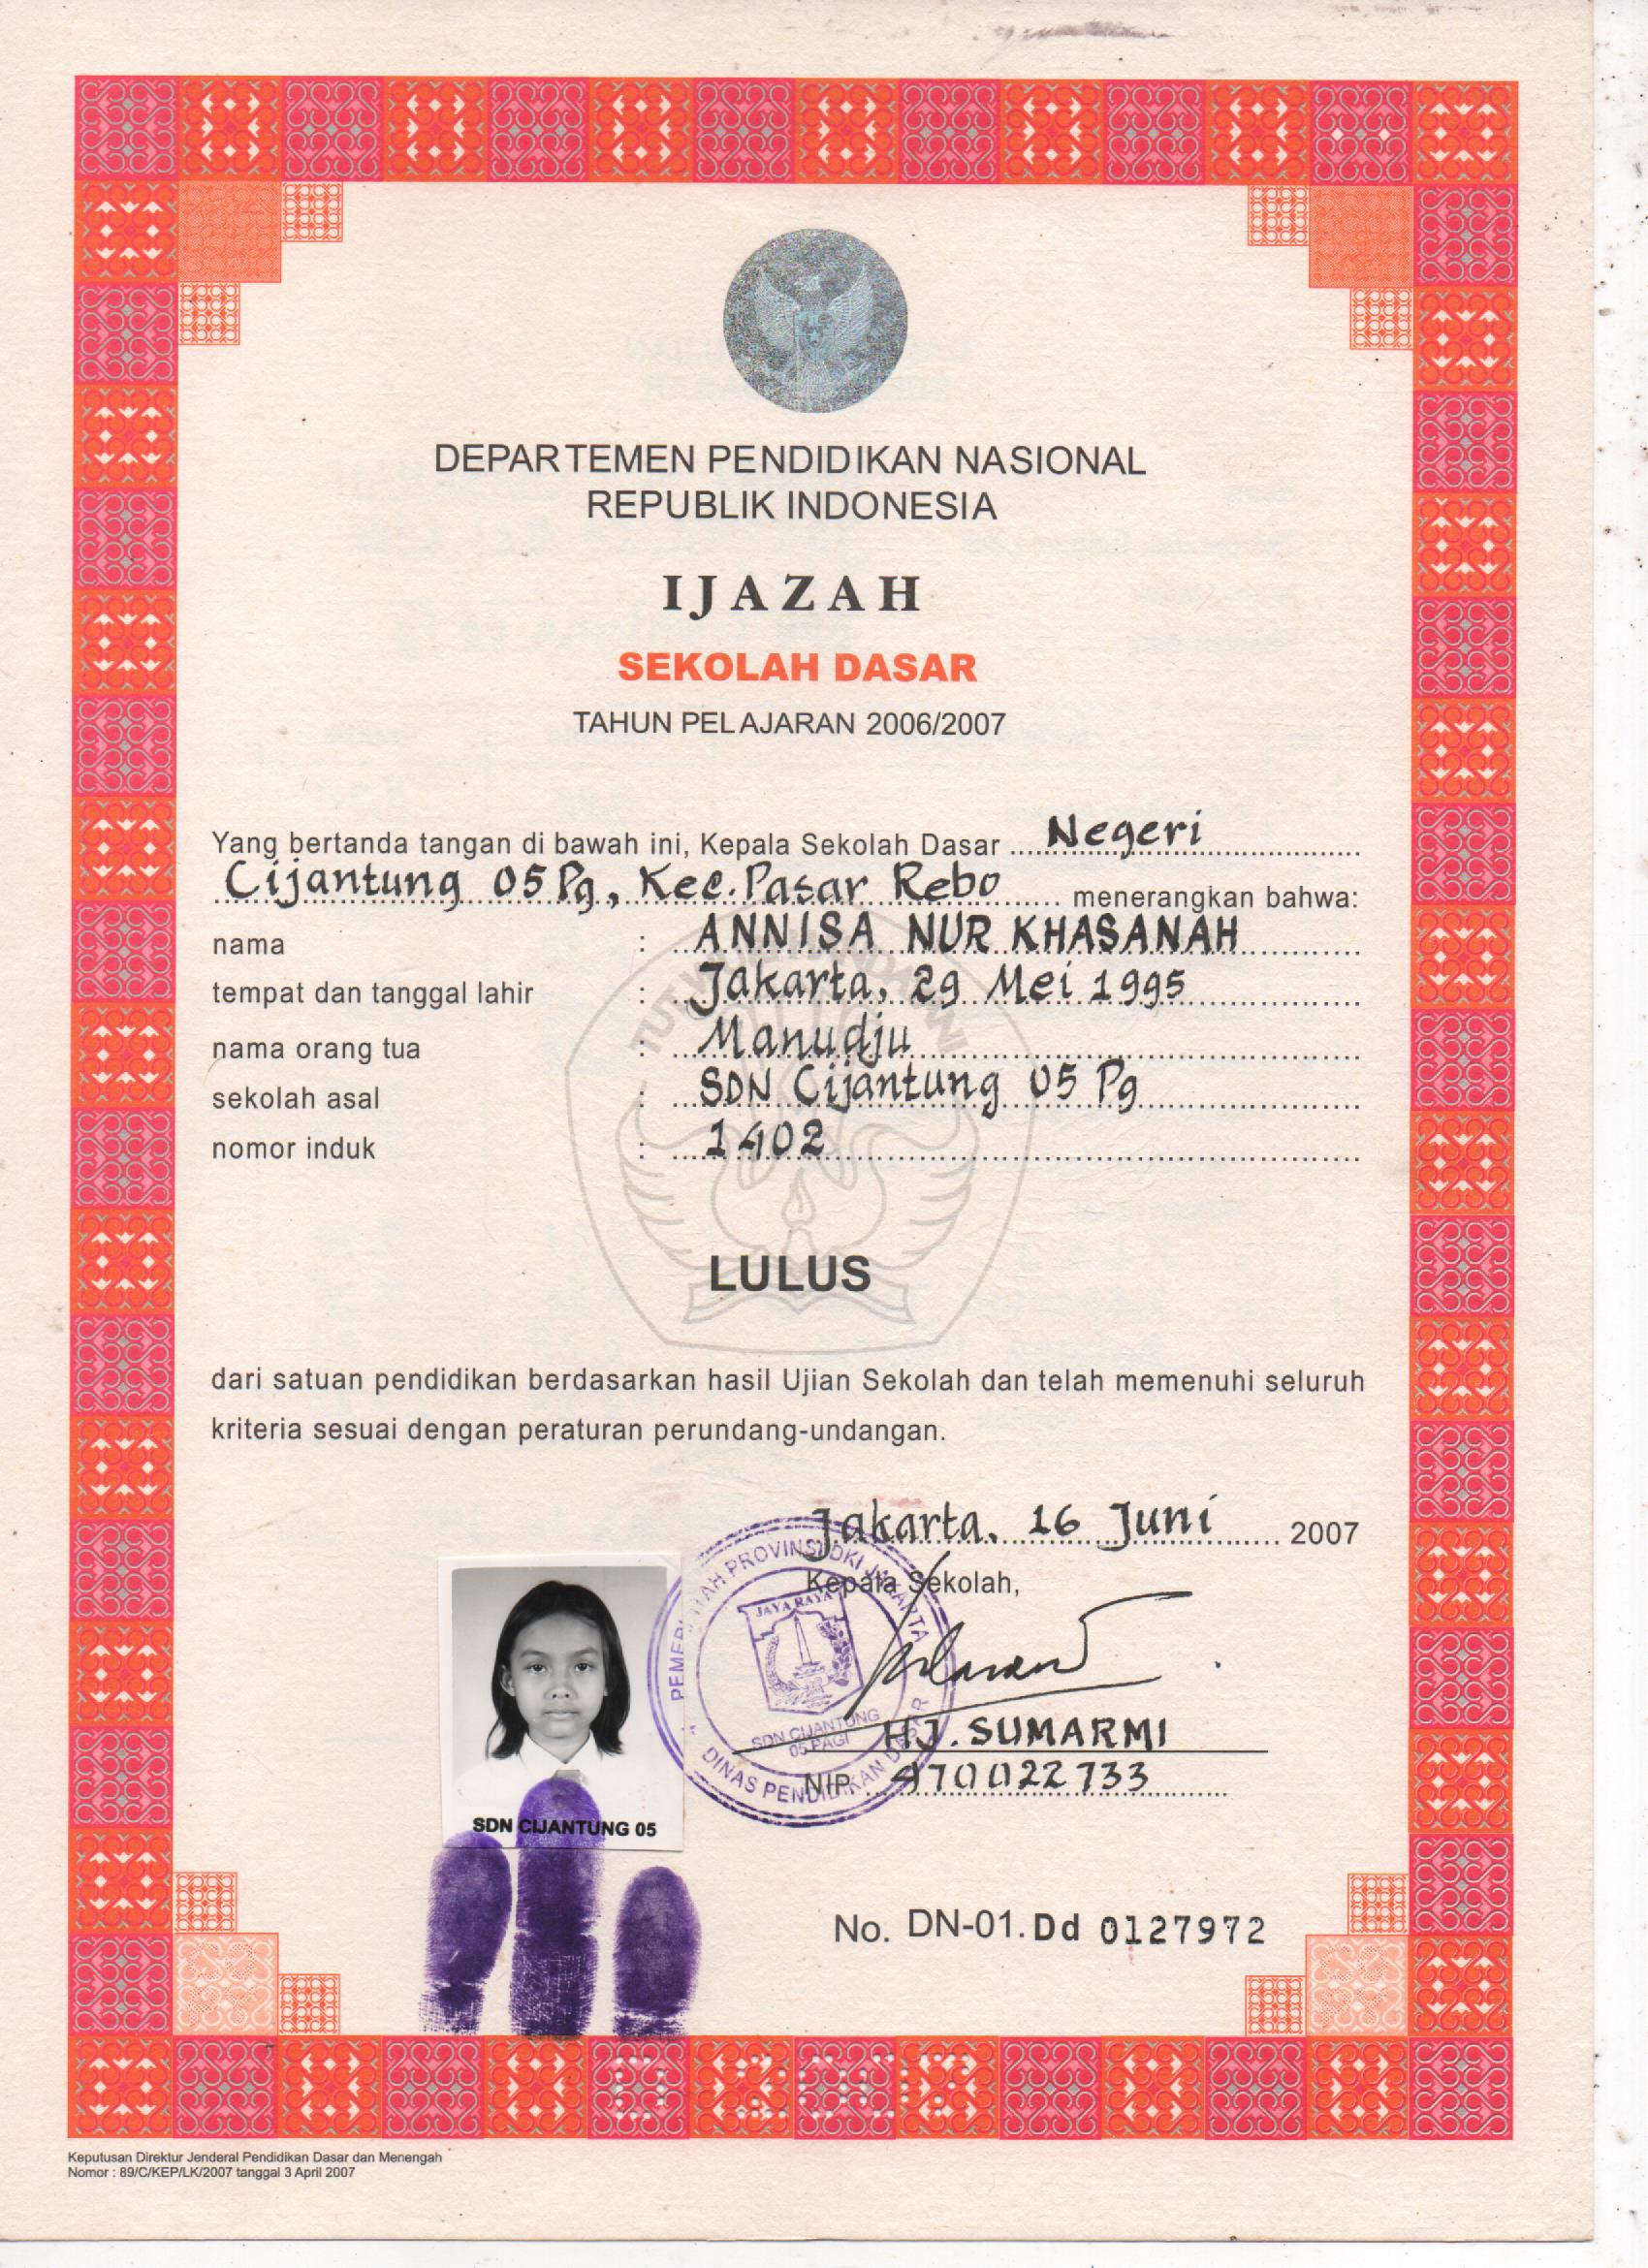 DEPARTEMEN PENDIDIKAN NASIONAL
REPUBLIK INDONESIA
IJAZAH
SEKOLAH DASAR
TAHUN PELAJARAN 2006/2007
Yang bertanda tangan di bawah ini, Kepala Sekolah Dasar Negeri
Cijantung 05 Pg, Kec. Pasar Rebo menerangkan bahwa:
nama : ANNISA NUR KHASANAH
tempat dan tanggal lahir : Jakarta, 29 Mei 1995
nama orang tua : Manudju
sekolah asal : SDN Cijantung 05 Pg
nomor induk : 1402
LULUS
dari satuan pendidikan berdasarkan hasil Ujian Sekolah dan telah memenuhi seluruh
kriteria sesuai dengan peraturan perundang-undangan.
Jakarta, 16 Juni 2007
Kepala Sekolah,
PEMERINTAH PROVINSI DKI JAKARTA
JAYA RAYA
SDN CIJANTUNG
05 PAGI
DINAS PENDIDIKAN DASAR
HJ. SUMARMI
NIP. 470022733
SDN CIJANTUNG 05
No. DN-01. Dd 0127972
Keputusan Direktur Jenderal Pendidikan Dasar dan Menengah
Nomor : 89/C/KEP/LK/2007 tanggal 3 April 2007